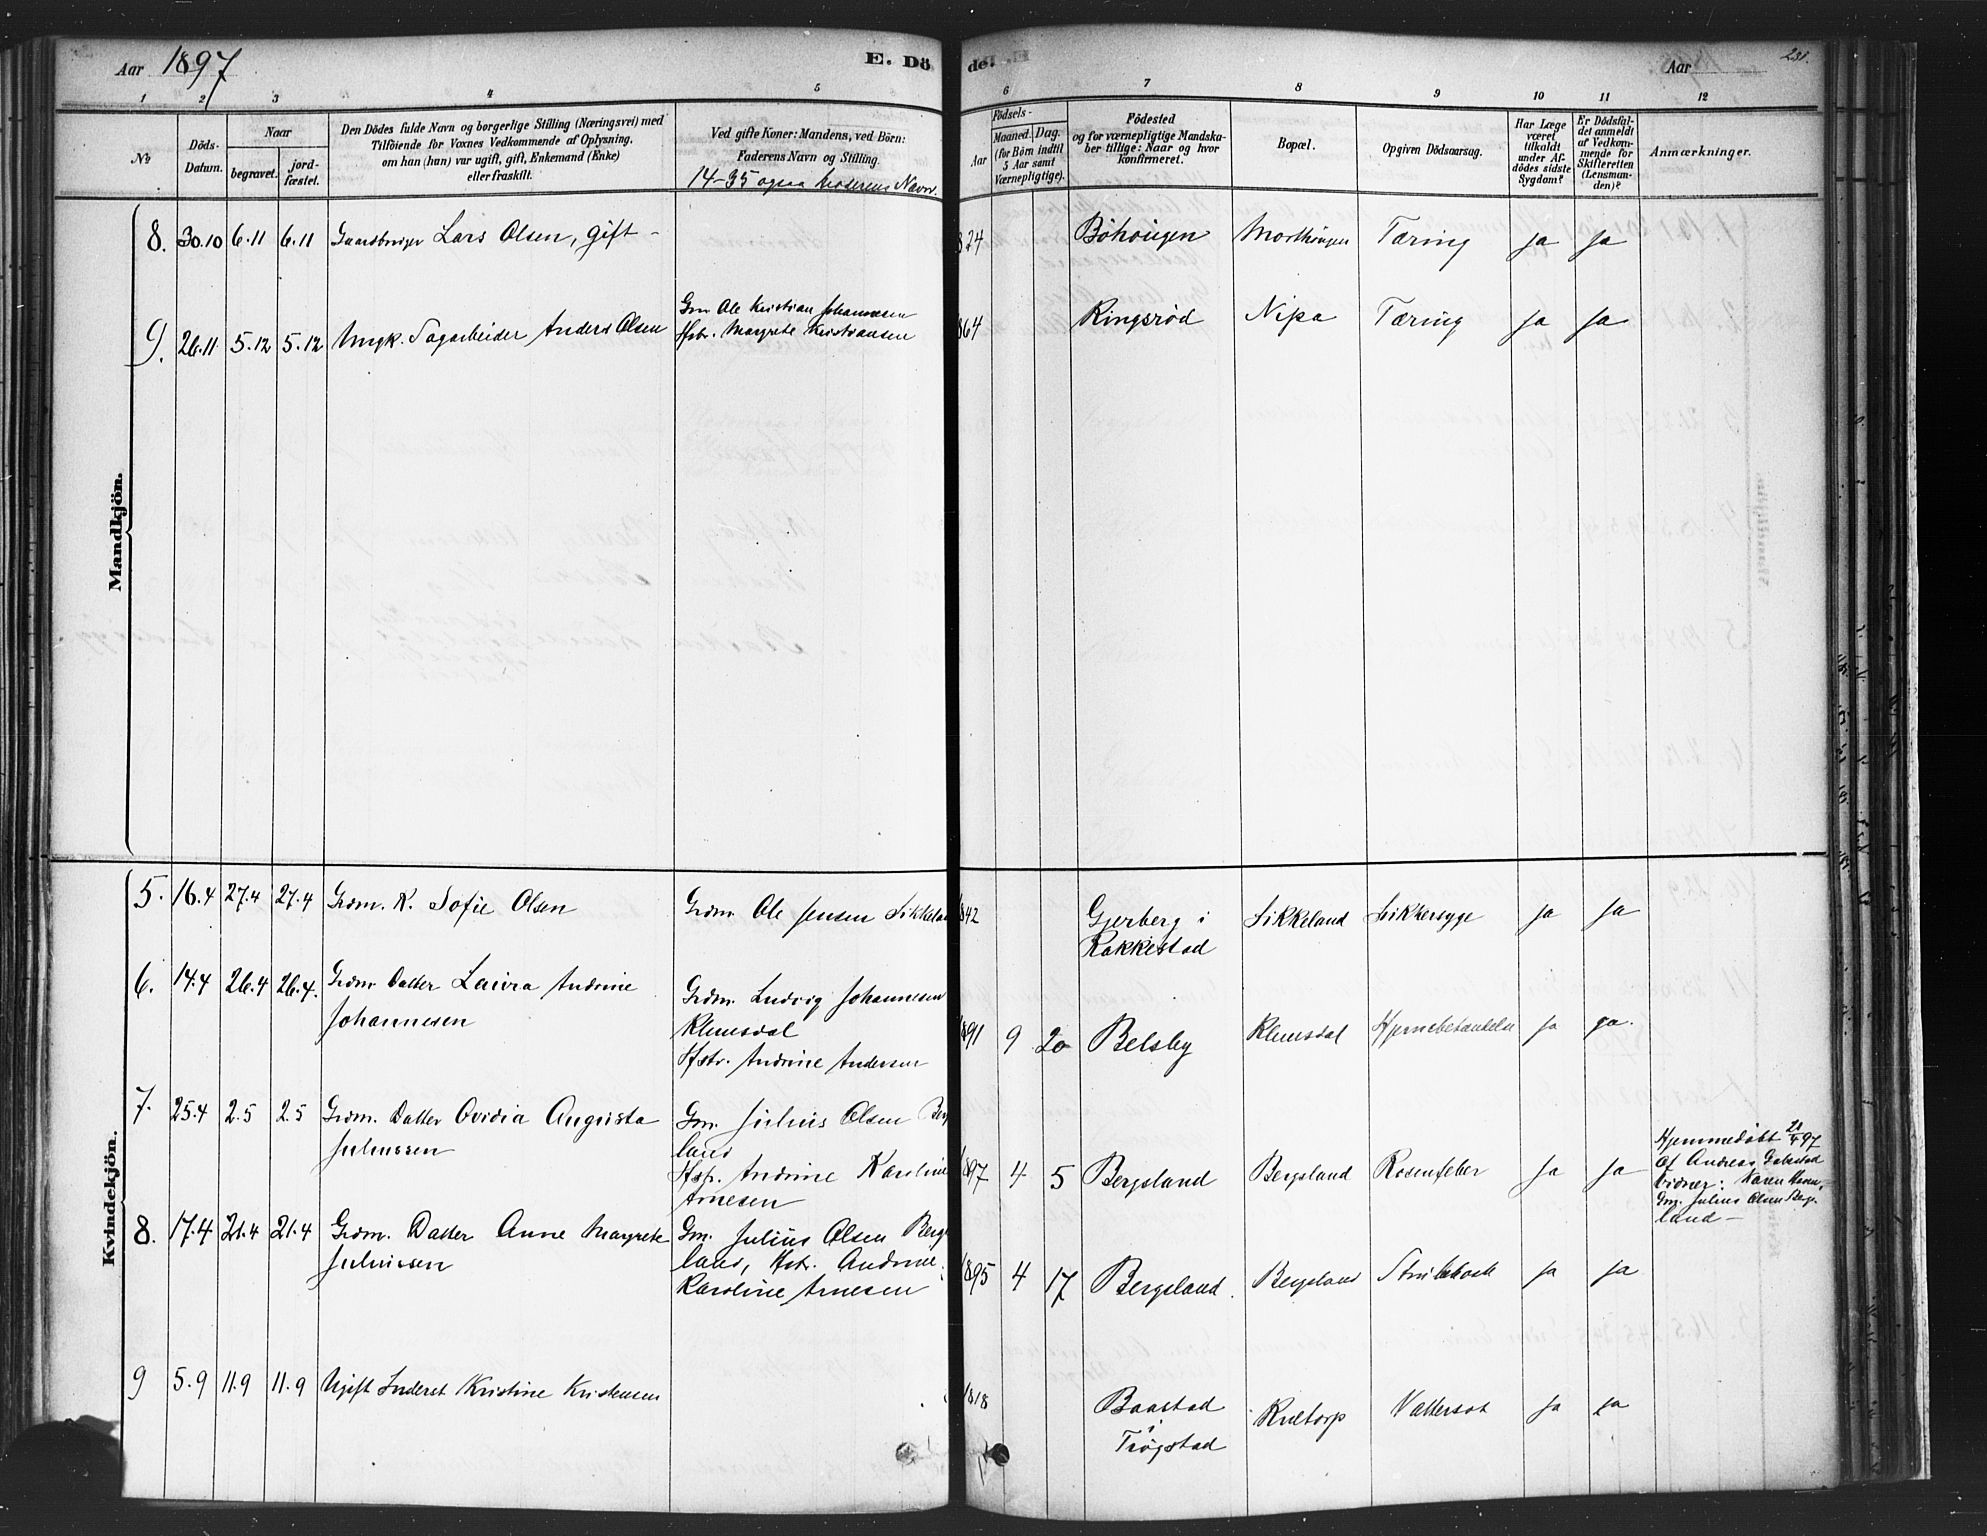 Aar 1897
E. Dö
de.
Aar
231.
1 2 3 4 5 6 7 8 9 10 11 12
No
Döds-
Datum.
Naar
begravet.
jord-
fæstet.
Den Dödes fulde Navn og borgerlige Stilling (Næringsvei) med
Tilföiende for Voxnes Vedkommende af Oplysning,
om han (hun) var ugift, gift, Enkemand (Enke)
eller fraskilt.
Ved gifte Koner: Mandens, ved Börn:
Faderens Navn og Stilling.
14-35 ogsaa Moderens Navn.
Födsels-
Aar
Maaned.
Dag.
(for Börn indtil
5 Aar samt
Værnepligtige).
Födested
og for værnepligtige Mandska-
ber tillige: Naar og hvor
konfirmeret.
Bopæl.
Opgiven Dödsaarsag.
Har Læge
været
tilkaldt
under Af-
dödes sidste
Sygdom?
Er Dödsfal-
det anmeldt
af Vedkom-
mende for
Skifteretten
(Lensman-
den)?
Anmærkninger.
Mandkjön.
8. 30.10 6.11 6.11 Gaardbruger Lars Olsen, gift - 824 Böhougen Morthougen Tæring ja ja
9. 26.11 5.12 5.12 Ungk. Sagarbeider Anders Olsen
Gm Ole Kristian Johannesen
Hstr. Margrete Kristiansen
864 Ringsröd Nipa Tæring ja ja
Kvindekjön.
5. 16.4 27.4 27.4 Grdm. K. Sofie Olsen Grdm. Ole Jensen Sikkela
842 Gjerberg i
Rakkestad
Sikkeland Sukkersyge ja ja
6. 14.4 26.4 26.4. Grdm. Datter Laura Andrine
Johannesen
Grdm. Ludvig Johannesen
Klemsdal
Hstr. Andrine Andersen
1891 9 20 Belsby Klemsdal ja ja.
7. 25.4 2.5 2.5 Grdm. Datter Ovidia Augusta
Juliussen
Gm. Julius Olsen Berg
land
Hstr. Andrine Karoline
Arnesen
1897 4 5 Bergsland Bergsland Rosenfeber ja ja
Hjemmedöbt 21/4 97
af Andreas
Vidner: Karen
Gm. Julius Olsen Berg-
land -
8. 17.4 21.4 21.4 Grdm. Datter Anne Margrete
Juliussen
Gm. Julius Olsen Bergs
land, Hstr. Andrine
Karoline Arnesen
1895 4 17 Bergsland. Bergsland Strubehoste ja ja
9 5.9 11.9 11.9 Ugift Inderst Kristine Kristensen
1818 Baastad
i
Trögstad
Kultorp Vattersot ja ja